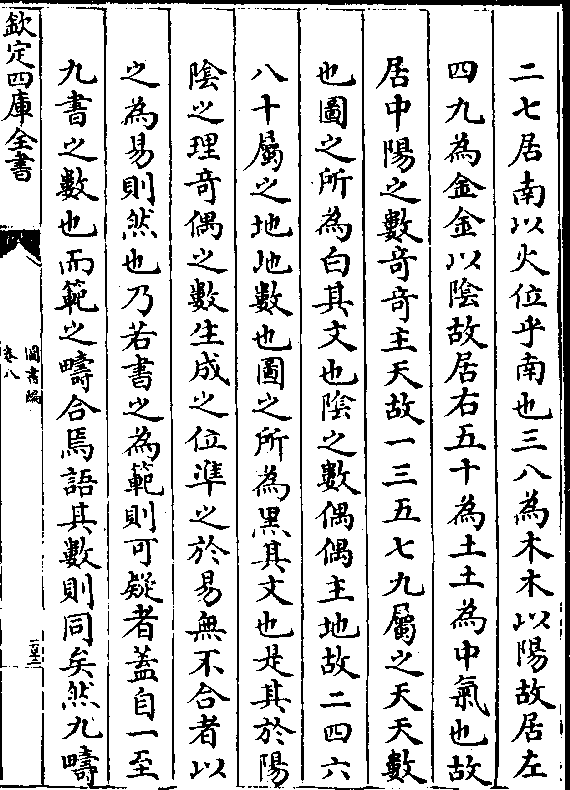 二七居南以火位乎南也三八為木木以陽故居左
四九為金金以陰故居右五十為土土為中氣也故
居中陽之數奇奇主天故一三五七九屬之天天數
也圖之所為白其文也陰之數偶偶主地故二四六
八十屬之地地數也圖之所為黑其文也是其於陽
陰之理奇偶之數生成之位準之於易無不合者以
之為易則然也乃若書之為範則可疑者蓋自一至
九書之數也而範之疇合焉語其數則同矣然九疇
欽定四庫全書
圖書編
卷八